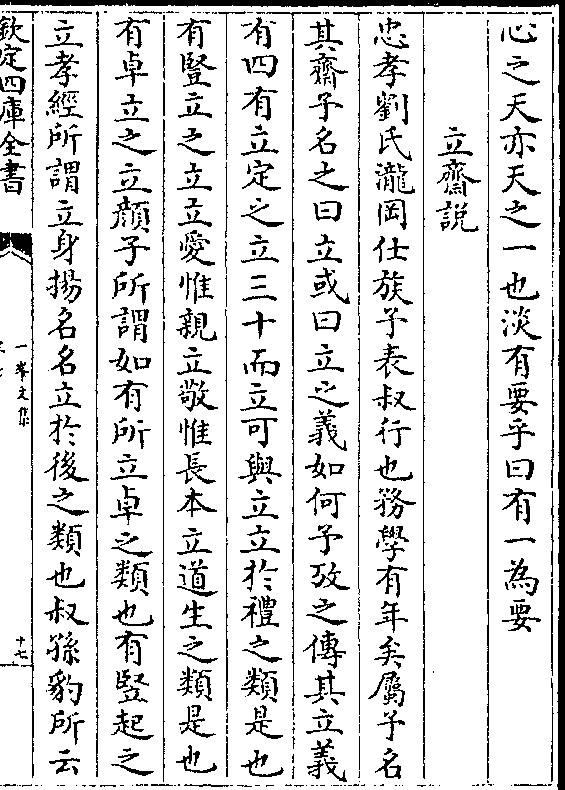 心之天亦天之一也淡有要乎曰有一為要
立齋説
忠孝劉氏瀧岡仕族子表叔行也務學有年矣屬予名
其齋予名之曰立或曰立之義如何予攷之傳其立義
有四有立定之立三十而立可與立立於禮之類是也
有豎立之立立愛惟親立敬惟長本立道生之類是也
有卓立之立顔子所謂如有所立卓之類也有豎起之
立孝經所謂立身揚名名立於後之類也叔孫豹所云
欽定四庫全書
一峯文集
十七